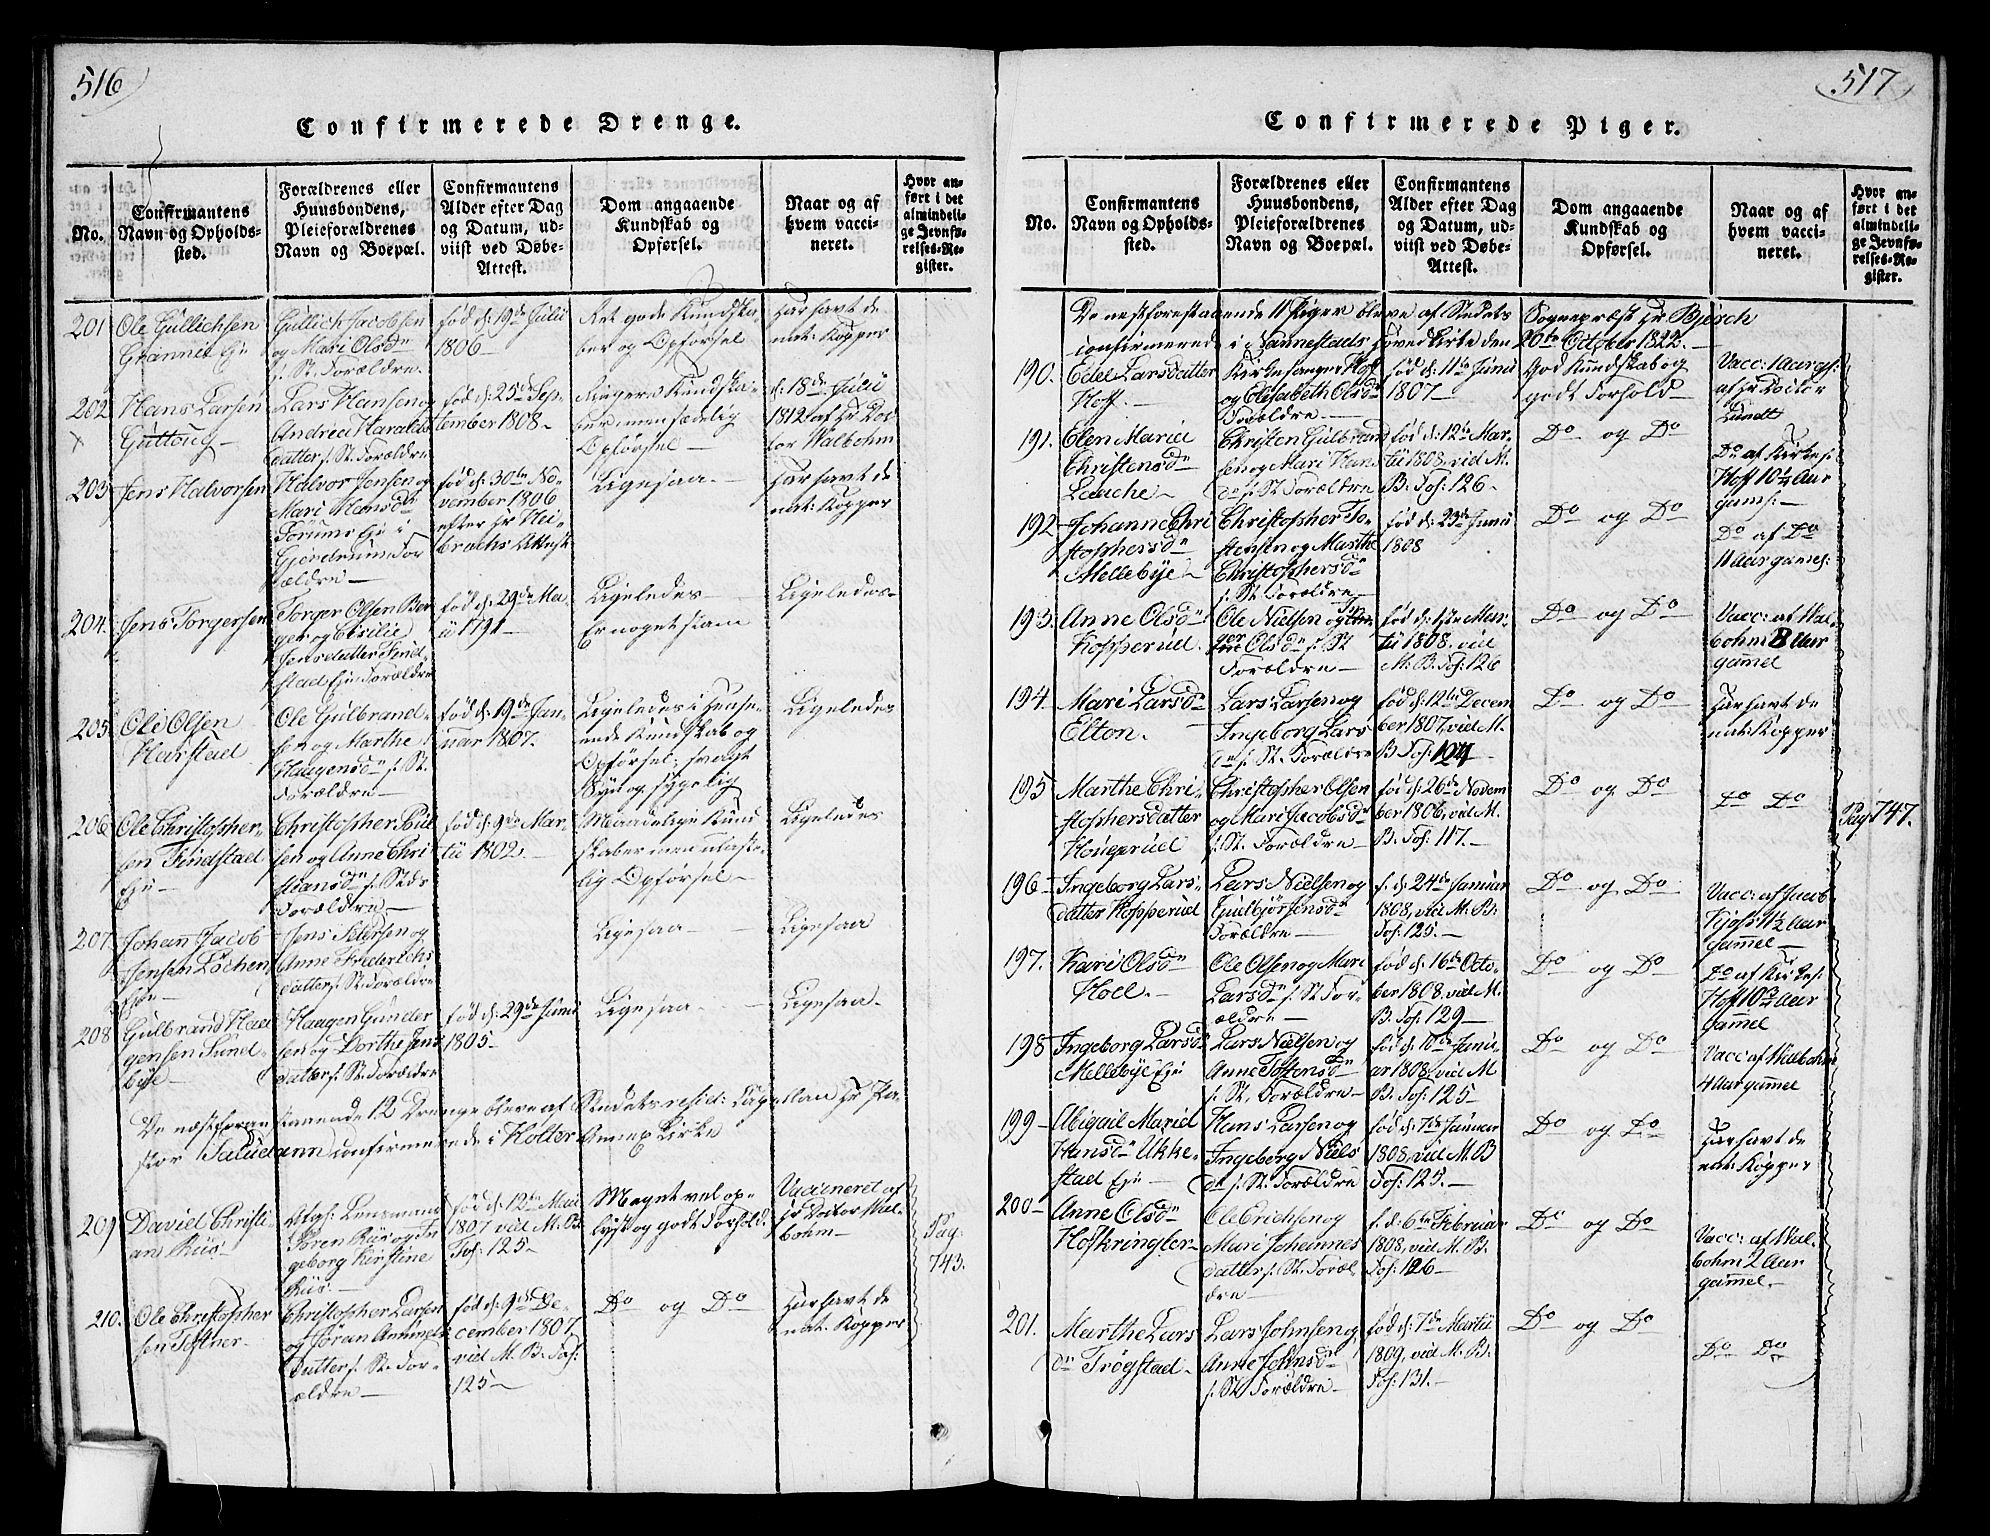 516
Confirmerede Drenge.
No.
Confirmantens
Navn og Opholds-
sted.
Forældrenes eller
Huusbondens,
Pleieforældrenes
Navn og Boepæl.
Confirmantens
Alder efter Dag
og Datum, ud-
viist ved Døbe-
Attest.
Dom angaaende
Kundskab og
Opførsel.
Naar og af
hvem vacci-
neret.
Hvor an-
ført i det
almindeli-
ge Jevnfø-
relses-Re-
gister.
201
Ole Gullichsen
Grønnli Eje
Gullich Jacobsen
og Mari Olsdn
f. St. Forældre.
fød d: 19de Julii
1806 —
Ret gode Kundska-
ber og Opførsel
Har havt de
nat: Kopper
202
Hans Larsen
Guttoug —
Lars Hansen og
Andrea Haralds
datter f. St. Forældre
fød d: 25de Sep-
tember 1808 -
Ringere Kundska-
ber men sædelig
Opførsel —
d. 18de Julii
1812 af Hr Doc-
tor Walbohm
203
Jens Halvorsen
Halvor Jensen og
Mari Hansdn
Forums Eje i
Gjerdrum For
ældre —
fød d: 30te No-
vember 1806
efter Hr Nei-
brochs Attest
Ligesaa. —
Har havt de
nat: Kopper
204.
Jens Torgersen
Torger Olsen Ber
ger og Cicilie
Jensdatter Find-
stad Eje Forældre
fød d: 29de Ma-
ii 1791 —
Ligeledes —
Er noget stam
Ligeledes -
205.
Ole Olsen
Harstad
Ole Gulbrand-
sen og Marthe
Haagensdn f. St.
Forældre —
fød d: 19de Jan-
uar 1807.
Ligeledes i Hense-
ende Kundskab og
Opførsel; svagt
Syn og sygelig
Ligeledes
206
Ole Christopher-
sen Findstad
Eje —
Christopher Poul
sen og Anne Chri-
stiansdn f. Steds
Forældre —
fød d: 9de Mar-
tii 1802. —
Maadelige Kund
skaber men ulaste-
lig Opførsel —
Ligeledes
207.
Johan Jacob
Jensen Løchen
Eje —
Jens Petersen og
Anne Frederichs
datter f. St. Forældre
Ligesaa —
Ligesaa
208
Gulbrand Haa
gensen Sund-
bye —
Haagen Gunder
sen og Dorthe Jens
datter f. St. Forældre
fød d: 29de Junii
1805 —
Ligesaa. —
Ligesaa.
De næstforanstaaende 12 Drenge bleve af Stedets resid: Capellan Hr Pa-
stor Saludmann confirmerede i Holter Annex Kirke
209
David Christi-
an Riis.
Afgl: Lensmand
Søren Riis og In
geborg Kirstine
Riis.
fød d: 12te Maii
1807 vid M. B.
Fol: 125 —
Meget vel op-
lyst og godt Forhold.
Vaccineret af
Hr Doctor Wal-
bohm —
Pag.
743.
210.
Ole Christopher
sen Toftner.
Christopher Larsen
og Jøran Amunds
datter f. St. For-
ældre —
fød d: 9de De-
cember 1807
vid M. B. Fol:
125 —
Do og Do
Har havt de
nat: Kopper
517
Confirmerede Piger.
No.
Confirmantens
Navn og Opholds-
sted.
Forældrenes eller
Huusbondens,
Pleieforældrenes
Navn og Boepæl.
Confirmantens
Alder efter Dag
og Datum, ud-
viist ved Døbe-
Attest.
Dom angaaende
Kundskab og
Opførsel.
Naar og af
hvem vacci-
neret.
Hvor an-
ført i det
almindeli-
ge Jevnfø-
relses-Re-
gister.
De næstforestaaende 11 Piger bleve af Stedets Sognepræst Hr Bjerch
confirmerede i Nannestads Hoved Kirke den 20de October 1822. —
190.
Edel Larsdatter
Hoff. —
Kirkesanger Hoff
og Elisabeth Olsdn
Forældre. —
fød d: 11te Junii
1807 —
God Kundskab og
godt Forhold —
Vacc: 1 Aar gl:
af Hr Doctor
Lundt
191.
Elen Maria
Christensdn
Lauche —
Christen Gulbrand
sen og Mari Hans
dn f. St. Forældre
fød d: 12te Mar-
tii 1808, vid M.
B. Fol: 126 -
Do og Do
Do af Kirkes:
Hoff 10 1/2 Aar
gaml: —
192
Johanne Chri
stophersdn
Mellebye —
Christopher To-
stensen og Marthe
Christophersdn
f. St. Forældre —
fød d: 23de Junii
1808
Do og Do
Do af Do
11 Aar gamel:
193.
Anne Olsdn
Kopperud
Ole Nielsen og In-
ger Olsdn f. St
Forældre —
fød d: 1ste Mar-
tii 1808. vid
M. B. Fol: 126
Do og Do
Vacc: af Wal-
bohm 8 Aar
gammel
194
Mari Larsdn
Elton.
Lars Larsen og
Ingeborg Lars
dn f. St. Forældre
fød d: 12te Decem
ber 1807, vid M.
B. Fol: 124
Do og Do
Har havt de
nat: Kopper
195
Marthe Chri-
stophersdatter
Houprud
Christopher Olsen
og Mari Jacobsdn
f. St. Forældre —
fød d: 26de Novem
ber 1806, vid M.
B. Fol: 117. —
Do og Do
Do Do
Pag 747.
196 -
Ingeborg Lars-
datter Kopperud
Lars Nielsen og
Gulbjør Jensdn
Forældre —
f. d: 24de Januar
1808, vid M. B:
Fol: 125. —
Do og Do
Vacc: af Jacob
Kjos 11 1/2 Aar
gammel —
197.
Kari Olsdn
Holl. —
Ole Olsen og Mari
Larsdn f. St. For-
ældre —
fød d: 16de Octo-
ber 1808, vid M.
B. Fol: 129 —
Do og Do
Do af Kirkes:
Hoff 10 3/4 Aar
gammel
198
Ingeborg Larsdn
Mellebye Eje
Lars Nielsen og
Anne Tostensdn
f. St. Forældre —
fød d: 10de Janu-
ar 1808, vid M
B. Fol: 125 —
Do og Do
Vacc: af Walbohm
4 Aar gammel
199 -
Abigael Maria
Hansdn Ukke-
stad Eje —
Hans Larsen og
Ingeborg Niels
dn f. St. Forældre
fød d: 7de Januar
1808, vid M. B
Fol: 125. —
Do og Do
Har havt de
nat: Kopper
200 -
Anne Olsdn
Hofkringler -
Ole Erichsen og
Mari Johannes
datter f. St. Foræl
dre —
f. d: 6te Februar
1808, vid M. B.
Fol: 126 —
Do og Do
Vacc: af Wal-
bohm 2 Aar
gammel. —
201.
Marthe Lars
dn Trøgstad -
Lars Johnsen og
Anne Johnsdn
f. St. Forældre —
fød d: 7de Martii
1809, vid M. B:
Fol: 131. —
Do og Do
Do Do